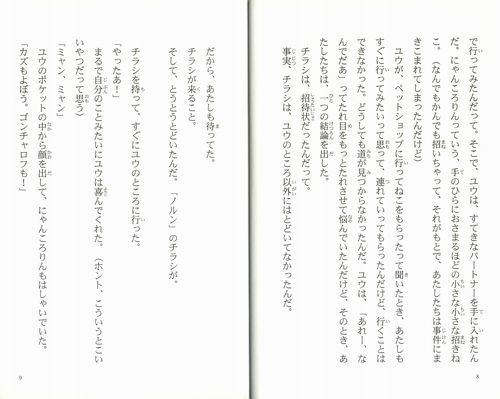 で行ってみたんだって。そこで、ユウは、すてきなパートナーを手に入れたん
だ。にゃんころりんっていう、手のひらにおさまるほどの小さな小さな招きね
こ。（なんでもかんでも招いちゃって、それがもとで、あたしたちは事件にま
きこまれてしまったんだけど）
ユウが、ペットショップに行ってねこをもらったって聞いたとき、あたしも
すぐに行ってみたいって思って、連れていってもらったんだけど、行くことは
できなかった。どうしても道が見つからなかったんだ。ユウは、「あれー、な
んでだぁ」ってたれ目をもっとたれさせて悩んでいたんだけど、そのとき、あ
たしたちは、一つの結論を出した。
チラシは、招待状だったんだって。
事実、チラシは、ユウのところ以外にはとどいてなかったんだ。
8
だから、あたしも待ってた。
チラシが来ること。
そして、とうとうとどいたんだ。「ノルン」のチラシが。
チラシを持って、すぐにユウのところに行った。
「やったあ！」
まるで自分のことみたいにユウは喜んでくれた。（ホント、こういうとこい
いやつだって思う）
「ミャン、ミャン」
ユウのポケットの中から顔を出して、にゃんころりんもはしゃいでいた。
「カズもよぼう。ゴンチャロフも！」
9